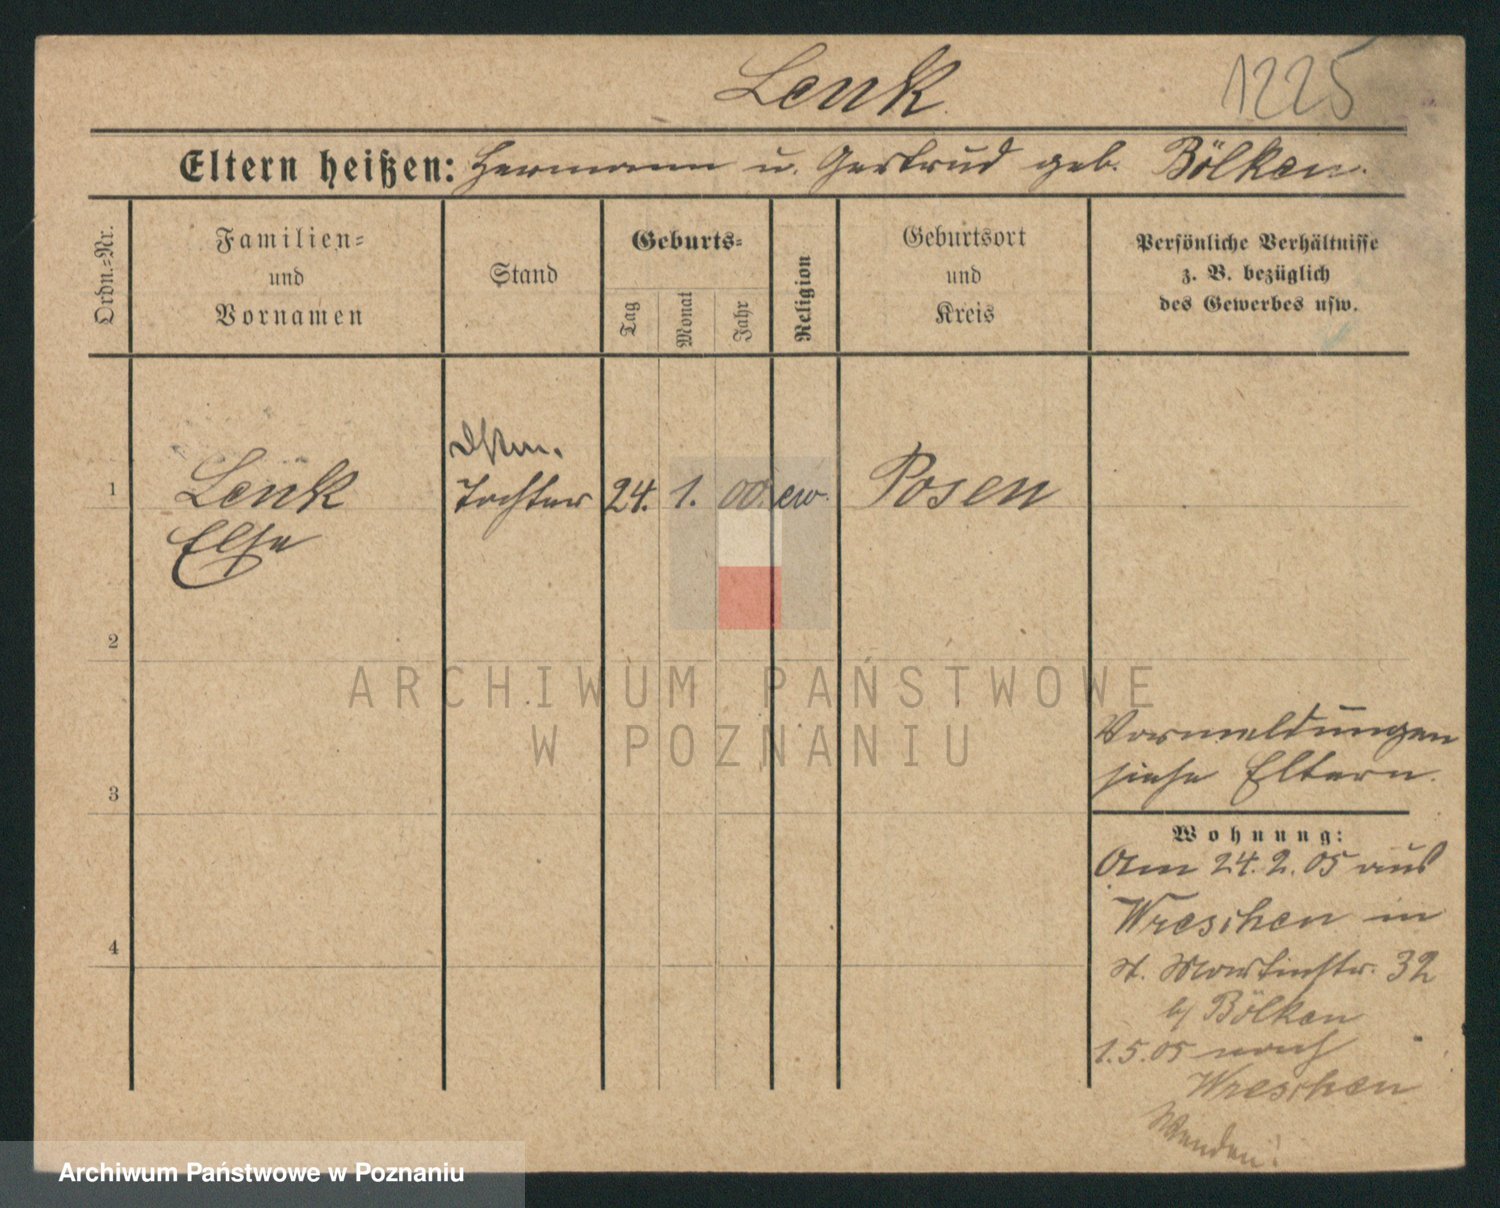 Lenk
1225
Eltern heißen: Hermann u. Gertrud geb. Bölken.
Ordn.-Nr.
Familien-
und
Vornamen
Stand
Geburts-
Tag
Monat
Jahr
Religion
Geburtsort
und
Kreis
Persönliche Verhältnisse
z. B. bezüglich
des Gewerbes usw.
1
Lenk
Else
Tochter
24.
1.
00.
ev.
Posen
2
3
4
Vormeldungen
siehe Eltern.
Wohnung:
Am 24.2.05 aus
Wreschen in
St. Martinstr. 32
b/ Bölken
1.5.05 nach
Wreschen
Wenden!
ARCHIWUM PAŃSTWOWE
W POZNANIU
Archiwum Państwowe w Poznaniu